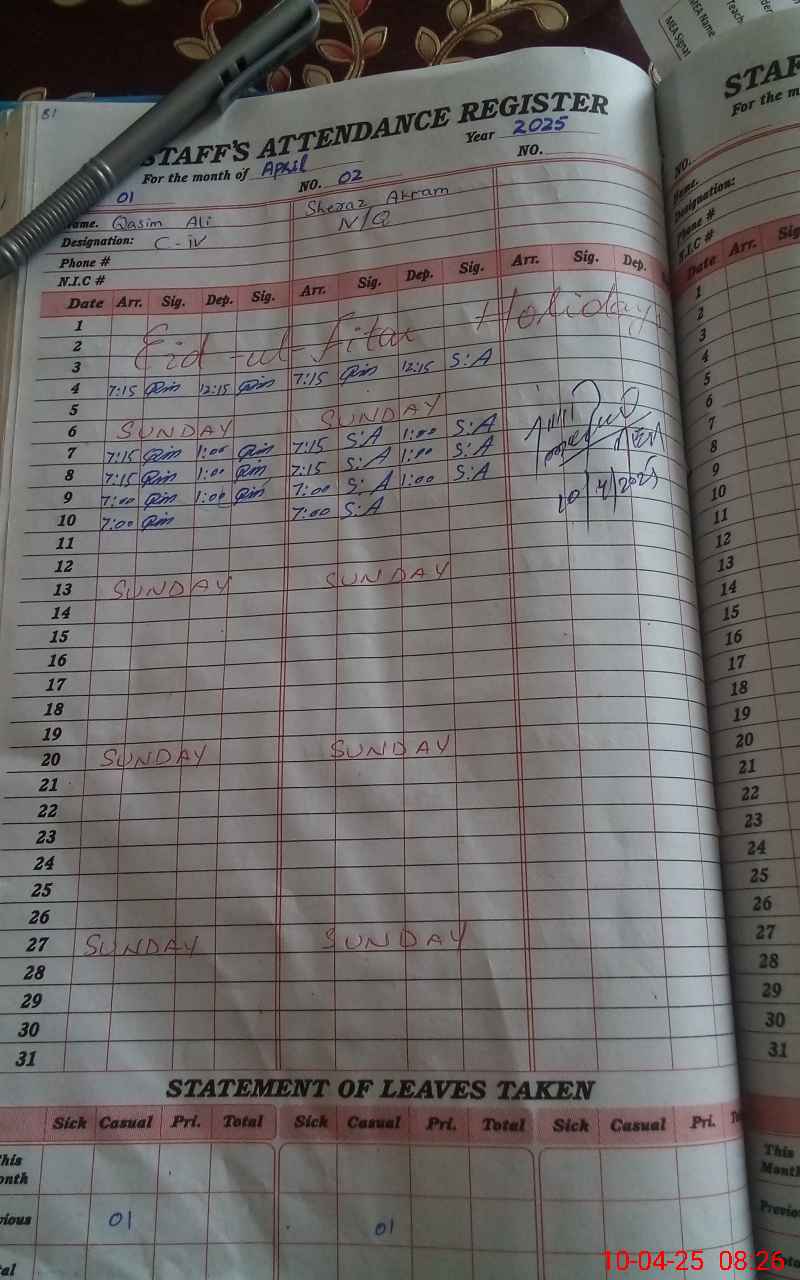 81
STAFF'S ATTENDANCE REGISTER
For the month of April Year 2025
01 NO. 02 NO.
Name. Qasim Ali Sheraz Akram
Designation: C-iV N/Q
Phone #
N.I.C #
Date Arr. Sig. Dep. Sig. Arr. Sig. Dep. Sig. Arr. Sig. Dep.
1
2 Eid-ul-Fitar Holidays
3
4 7:15 12:15 7:15 12:15 S:A
5
6 SUNDAY SUNDAY
7 7:15 1:00 7:15 S:A 1:00 S:A
8 7:15 1:00 7:15 S:A 1:00 S:A
9 7:00 1:00 7:00 S:A 1:00 S:A
10 7:00 7:00 S:A
MEA
10/4/2025
11
12
13 SUNDAY SUNDAY
14
15
16
17
18
19
20 SUNDAY SUNDAY
21
22
23
24
25
26
27 SUNDAY SUNDAY
28
29
30
31
STATEMENT OF LEAVES TAKEN
Sick Casual Pri. Total Sick Casual Pri. Total Sick Casual Pri.
01 01
MEA Name
MEA Signat
STAF
For the m
NO.
Name.
Designation:
Phone #
N.I.C #
Date Arr. Sig
1
2
3
4
5
6
7
8
9
10
11
12
13
14
15
16
17
18
19
20
21
22
23
24
25
26
27
28
29
30
31
This
Month
Previou
10-04-25 08:26